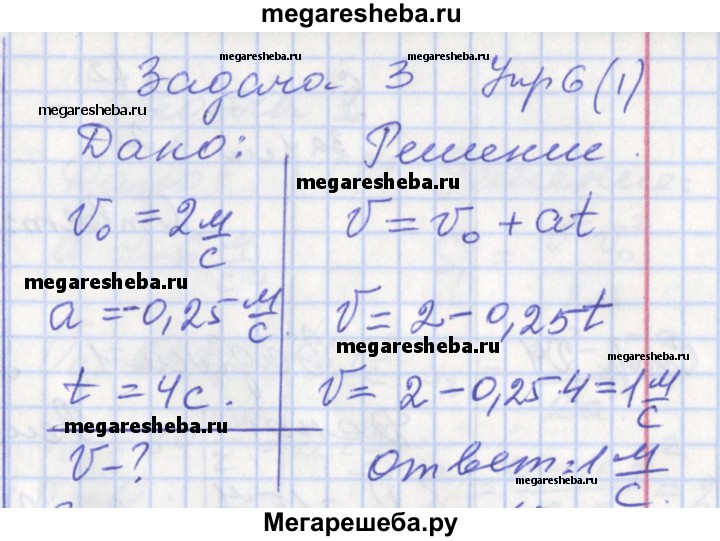 megaresheba.ru
megaresheba.ru
megaresheba.ru
Задача 3 Упр 6 (1)
megaresheba.ru
Дано: Решение.
megaresheba.ru
V₀ = 2 м/с
V = V₀ + at
megaresheba.ru
a = -0,25 м/с.
V = 2 - 0,25t
megaresheba.ru
megaresheba.ru
t = 4c.
V = 2 - 0,25·4 = 1 м/с
megaresheba.ru
V - ?
ответ: 1 м/с.
megaresheba.ru
Мегарешеба.ру